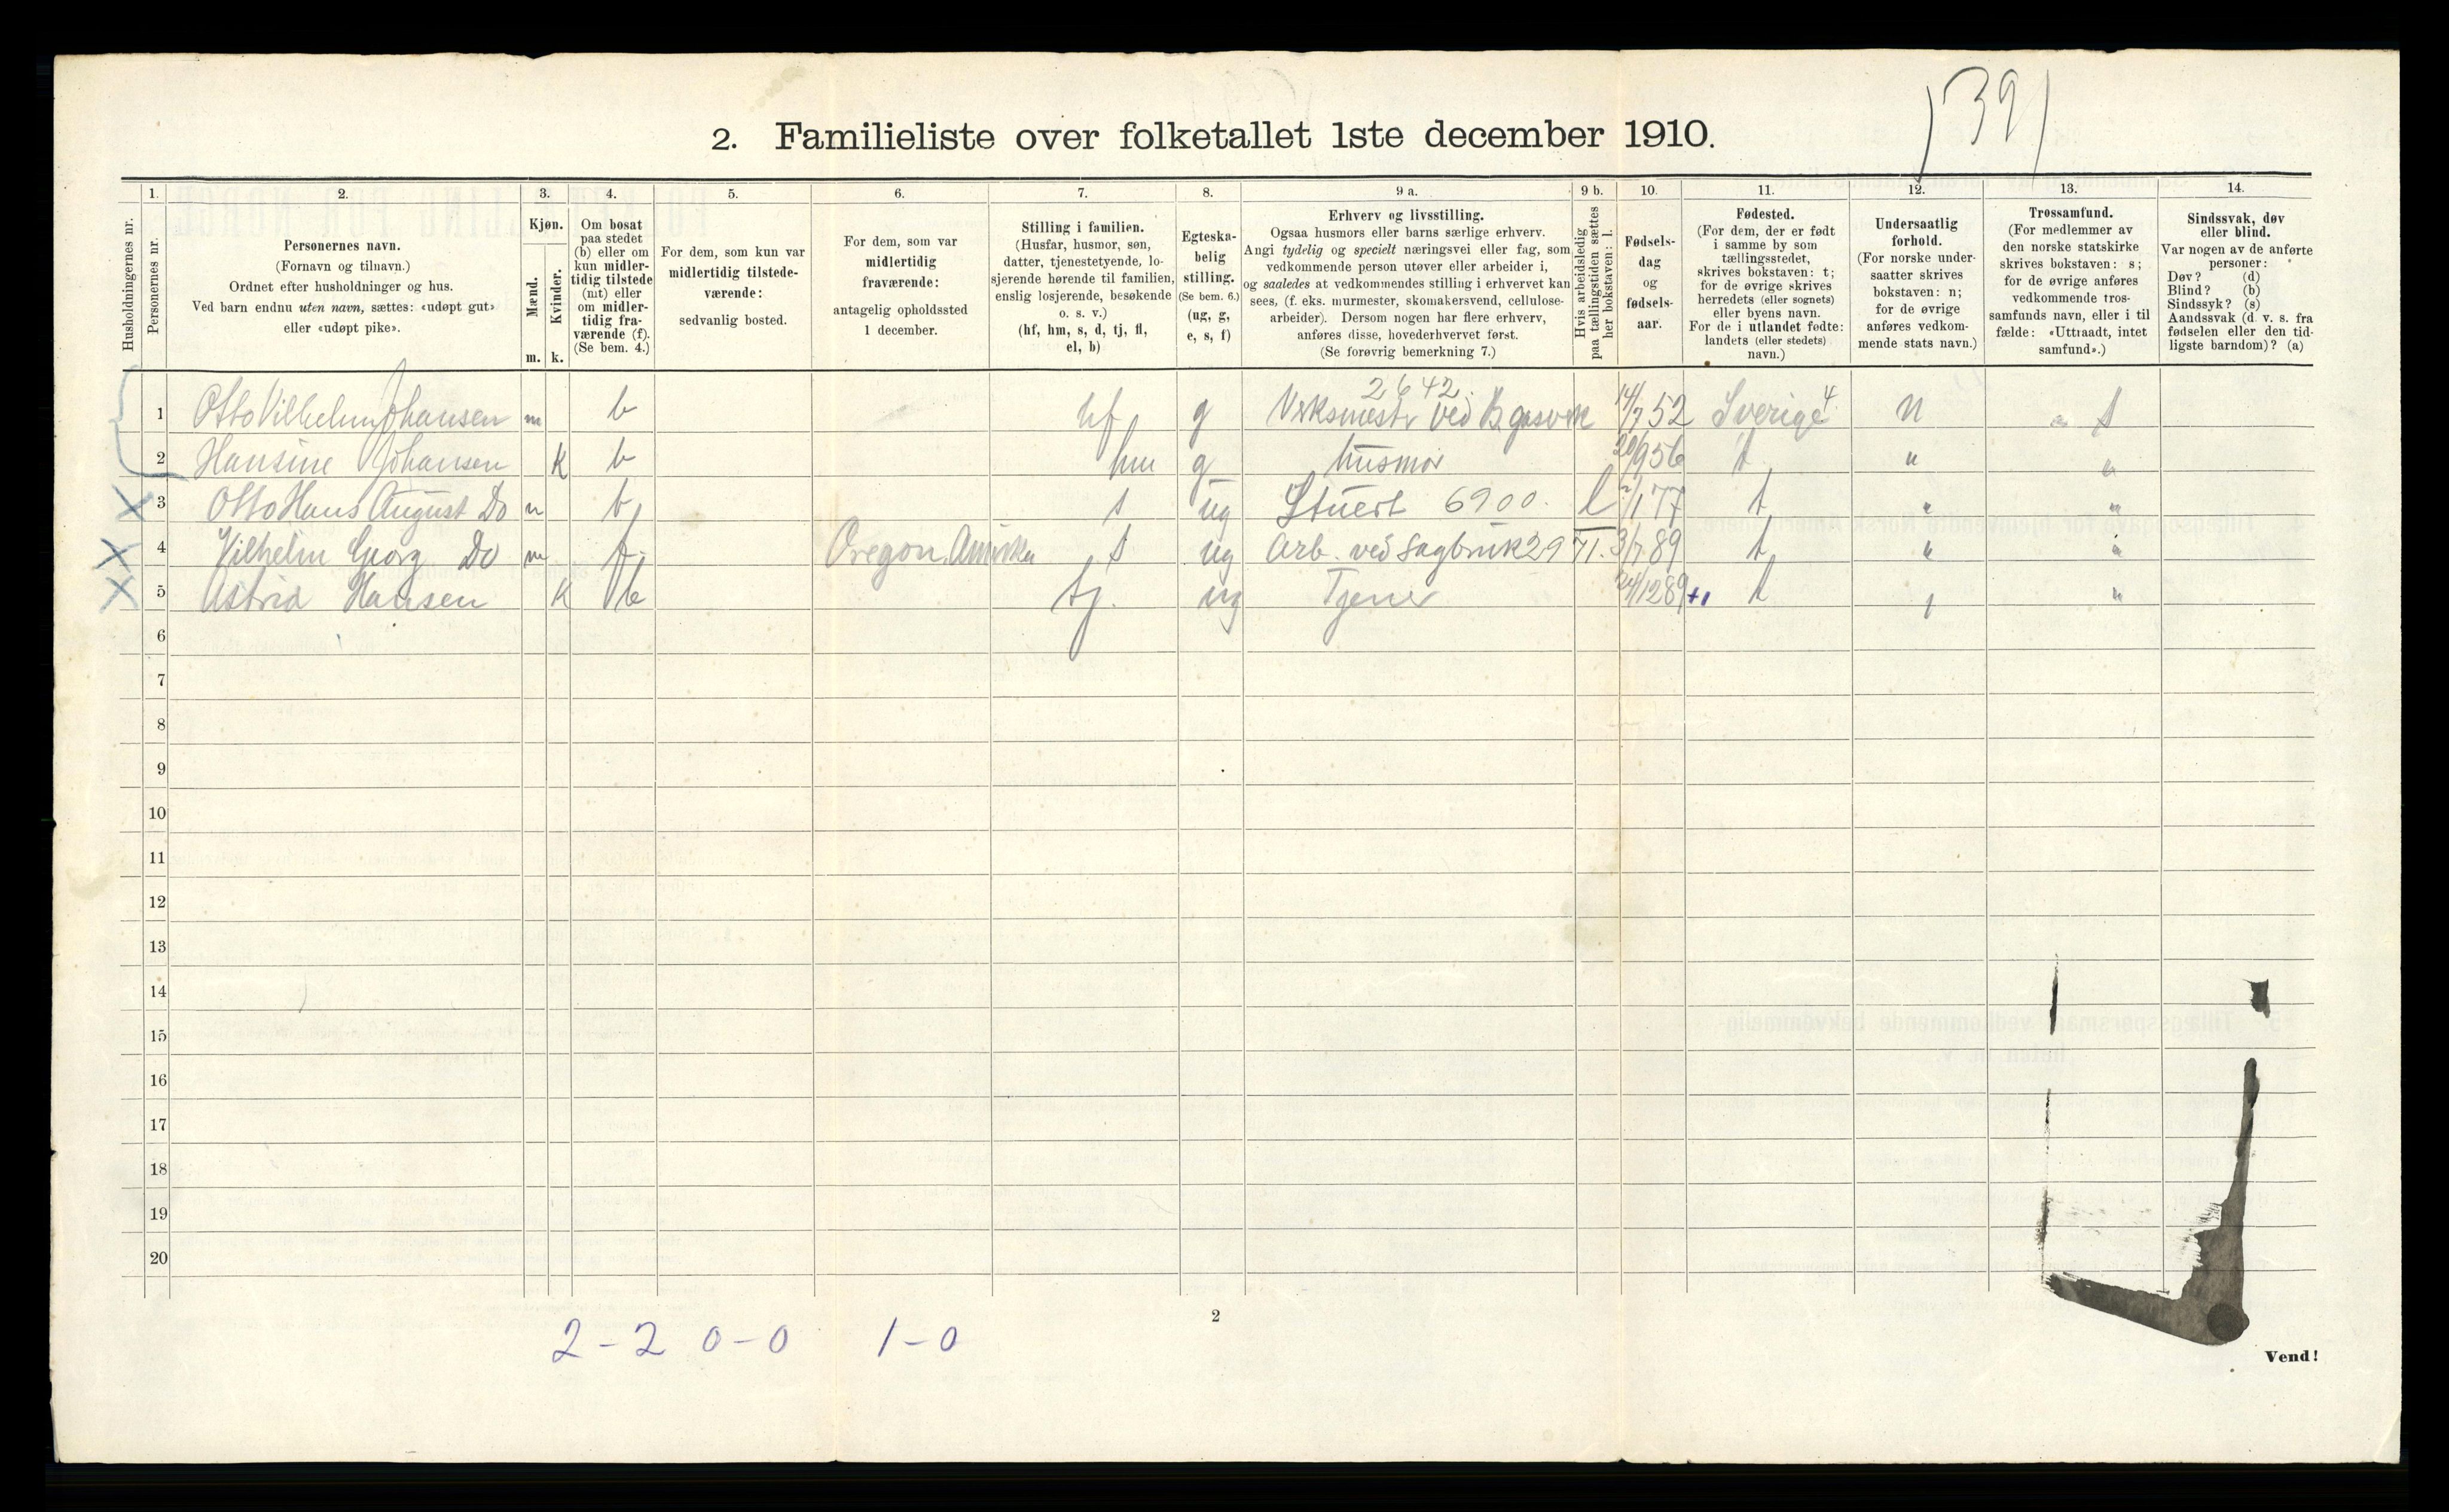 139
2. Familieliste over folketallet 1ste december 1910.
Husholdningernes nr.
1. Personernes nr.
2. Personernes navn.
(Fornavn og tilnavn.)
Ordnet efter husholdninger og hus.
Ved barn endnu uten navn, sættes: «udøpt gut»
eller «udøpt pike».
3. Kjøn.
Mænd. m.
Kvinder. k.
4. Om bosat
paa stedet
(b) eller om
kun midler-
tidig tilstede
(mt) eller
om midler-
tidig fra-
værende (f).
(Se bem. 4.)
5. For dem, som kun var
midlertidig tilstede-
værende:
sedvanlig bosted.
6. For dem, som var
midlertidig
fraværende:
antagelig opholdssted
1 december.
7. Stilling i familien.
(Husfar, husmor, søn,
datter, tjenestetyende, lo-
sjerende hørende til familien,
enslig losjerende, besøkende
o. s. v.)
(hf, hm, s, d, tj, fl,
el, b)
8. Egteska-
belig
stilling.
(Se bem. 6.)
(ug, g,
e, s, f)
9 a. Erhverv og livsstilling.
Ogsaa husmors eller barns særlige erhverv.
Angi tydelig og specielt næringsvei eller fag, som
vedkommende person utøver eller arbeider i,
og saaledes at vedkommendes stilling i erhvervet kan
sees, (f. eks. murmester, skomakersvend, cellulose-
arbeider). Dersom nogen har flere erhverv,
anføres disse, hovederhvervet først.
(Se forøvrig bemerkning 7.)
9 b. Hvis arbeidsledig
paa tællingstiden sættes
her bokstaven: l.
10. Fødsels-
dag
og
fødsels-
aar.
11. Fødested.
(For dem, der er født
i samme by som
tællingsstedet,
skrives bokstaven: t;
for de øvrige skrives
herredets (eller sognets)
eller byens navn.
For de i utlandet fødte:
landets (eller stedets)
navn.)
12. Undersaatlig
forhold.
(For norske under-
saatter skrives
bokstaven: n;
for de øvrige
anføres vedkom-
mende stats navn.)
13. Trossamfund.
(For medlemmer av
den norske statskirke
skrives bokstaven: s;
for de øvrige anføres
vedkommende tros-
samfunds navn, eller i til
fælde: «Uttraadt, intet
samfund».)
14. Sindssvak, døv
eller blind.
Var nogen av de anførte
personer:
Døv? (d)
Blind? (b)
Sindssyk? (s)
Aandssvak (d. v. s. fra
fødselen eller den tid-
ligste barndom)? (a)
2642.
1 Otto Vilhelm Johansen m b hf g Verksmestr ved B. gasverk 14/7 52 Sverige 4 n s
2 Hansine Johansen k b hm g husmor 20/9 56 t " "
3 Otto Hans August Do m b s ug Stuert 6900. l 2/1 77 t " "
4 Vilhelm Georg Do m f. Oregon, Amerika s ug Arb. ved Sagbruk 29 3/7 89 t " "
5 Astrid Hansen k b tj. ug Tjener 24/12 89 +1 t "
6
7
8
9
10
11
12
13
14
15
16
17
18
19
20
2
2-2 0-0 1-0
Vend!